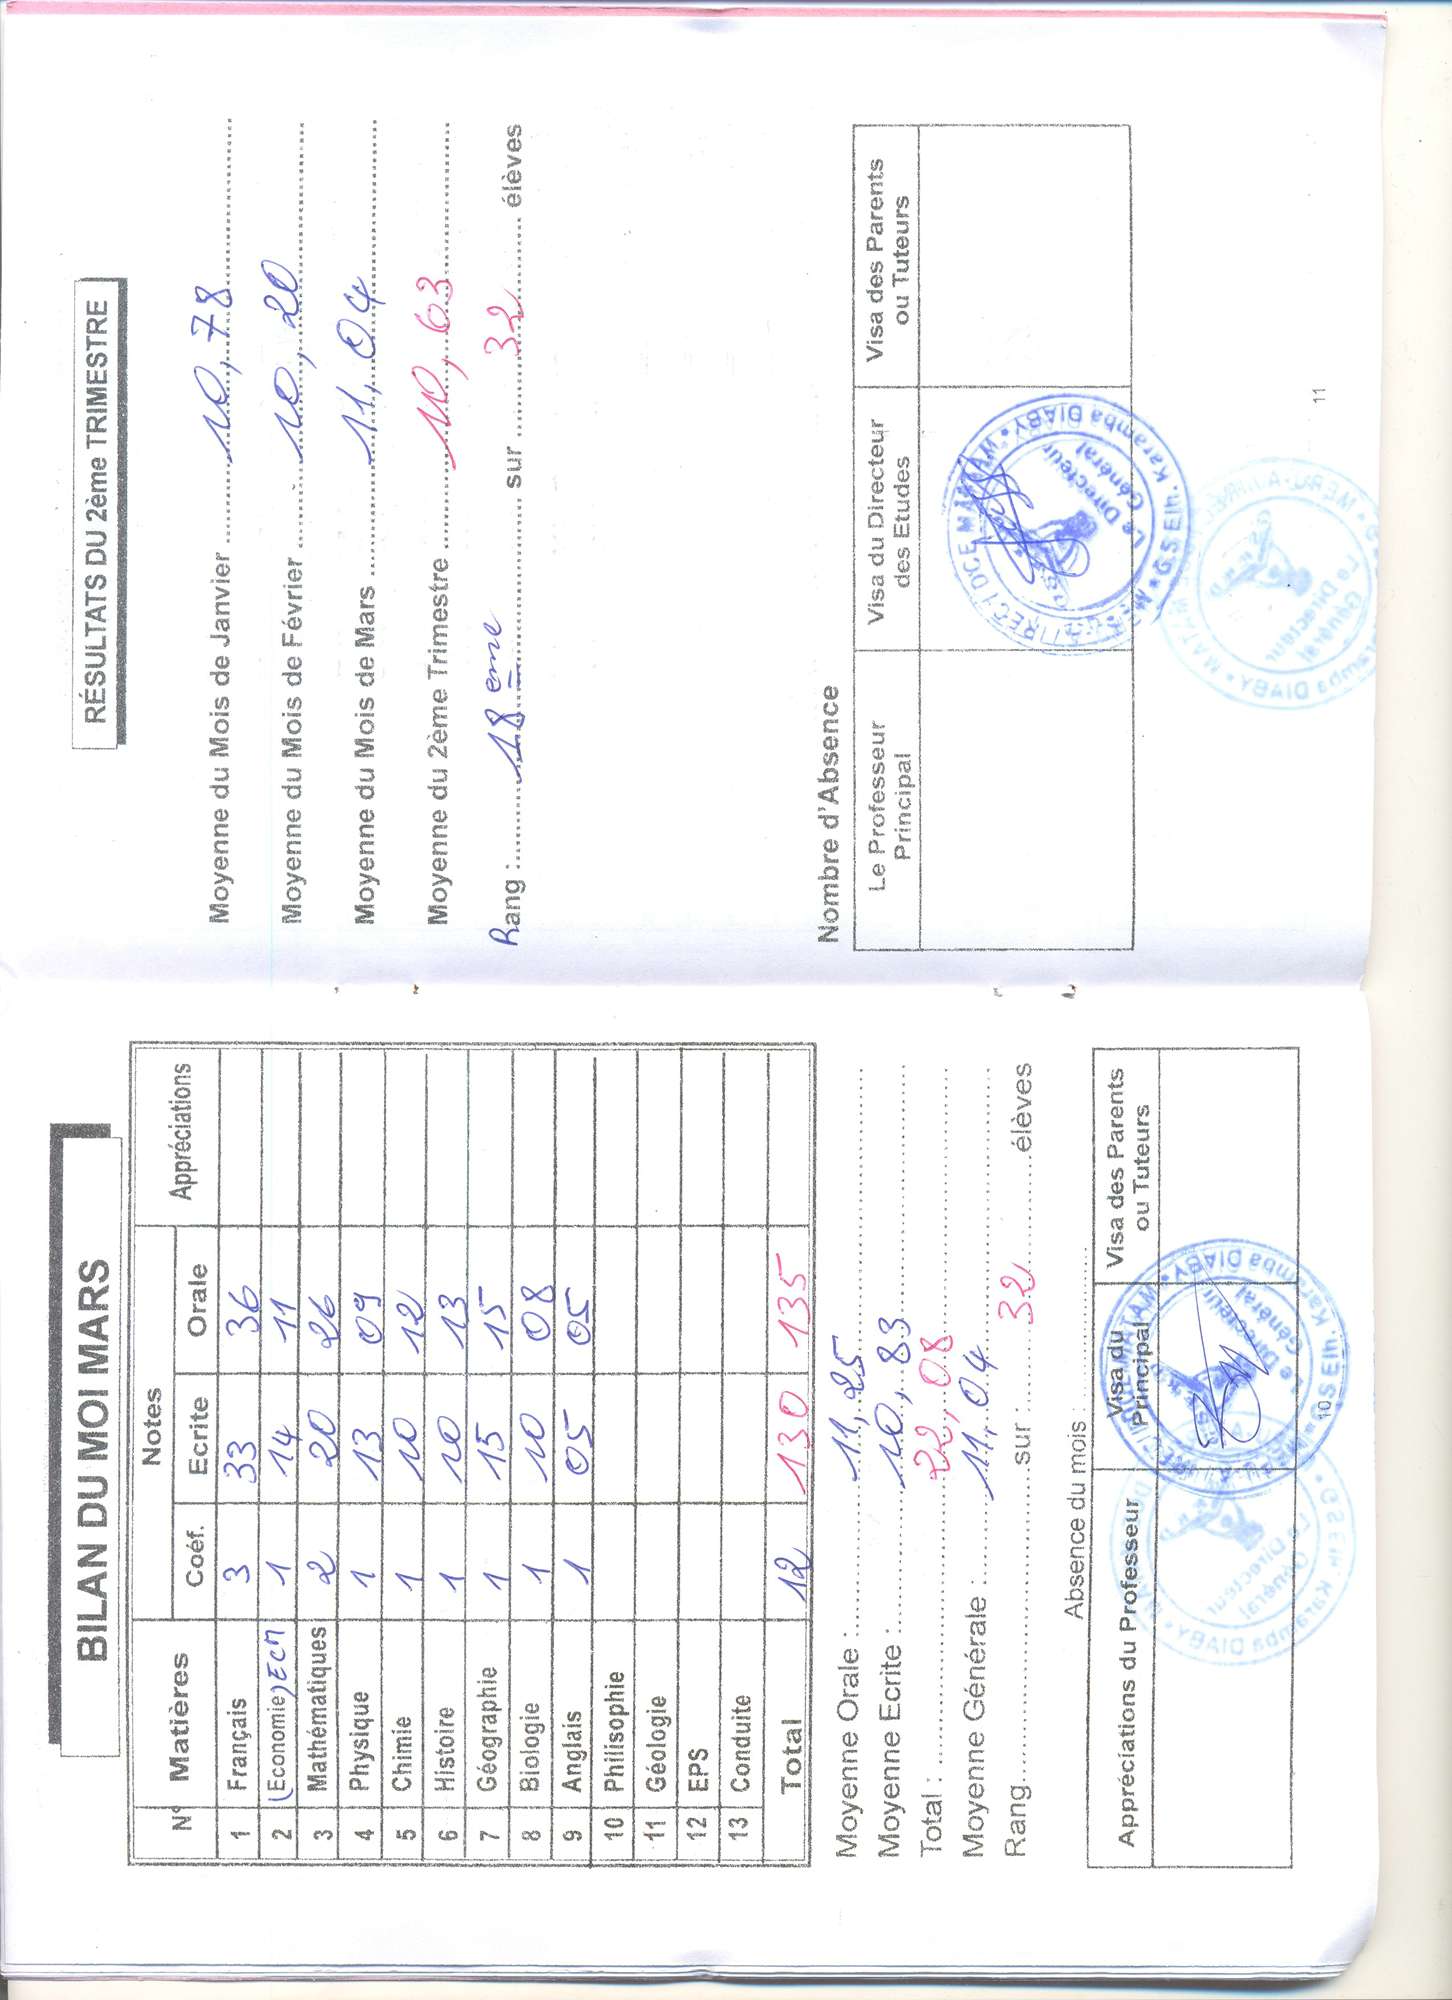 BILAN DU MOI MARS
N° Matières Notes Appréciations
Coéf. Ecrite Orale
1 Français 3 33 36
2 (Economie) ECM 1 14 11
3 Mathématiques 2 20 26
4 Physique 1 13 09
5 Chimie 1 10 12
6 Histoire 1 10 13
7 Géographie 1 15 15
8 Biologie 1 10 08
9 Anglais 1 05 05
10 Philisophie
11 Géologie
12 EPS
13 Conduite
Total 12 130 135
Moyenne Orale : 11,25
Moyenne Ecrite : 10,83
Total : 22,08
Moyenne Générale : 11,04
Rang sur : 32 élèves
Absence du mois :
Appréciations du Professeur Visa du Principal Visa des Parents ou Tuteurs
G.S Elh. Karamba DIABY
Le Directeur Général
10
RÉSULTATS DU 2ème TRIMESTRE
Moyenne du Mois de Janvier 10,78
Moyenne du Mois de Février 10,20
Moyenne du Mois de Mars 11,04
Moyenne du 2ème Trimestre 10,63
Rang : 18 ème sur 32 élèves
Nombre d'Absence
Le Professeur Principal Visa du Directeur des Etudes Visa des Parents ou Tuteurs
G.S Elh. Karamba DIABY
Le Directeur Général
11